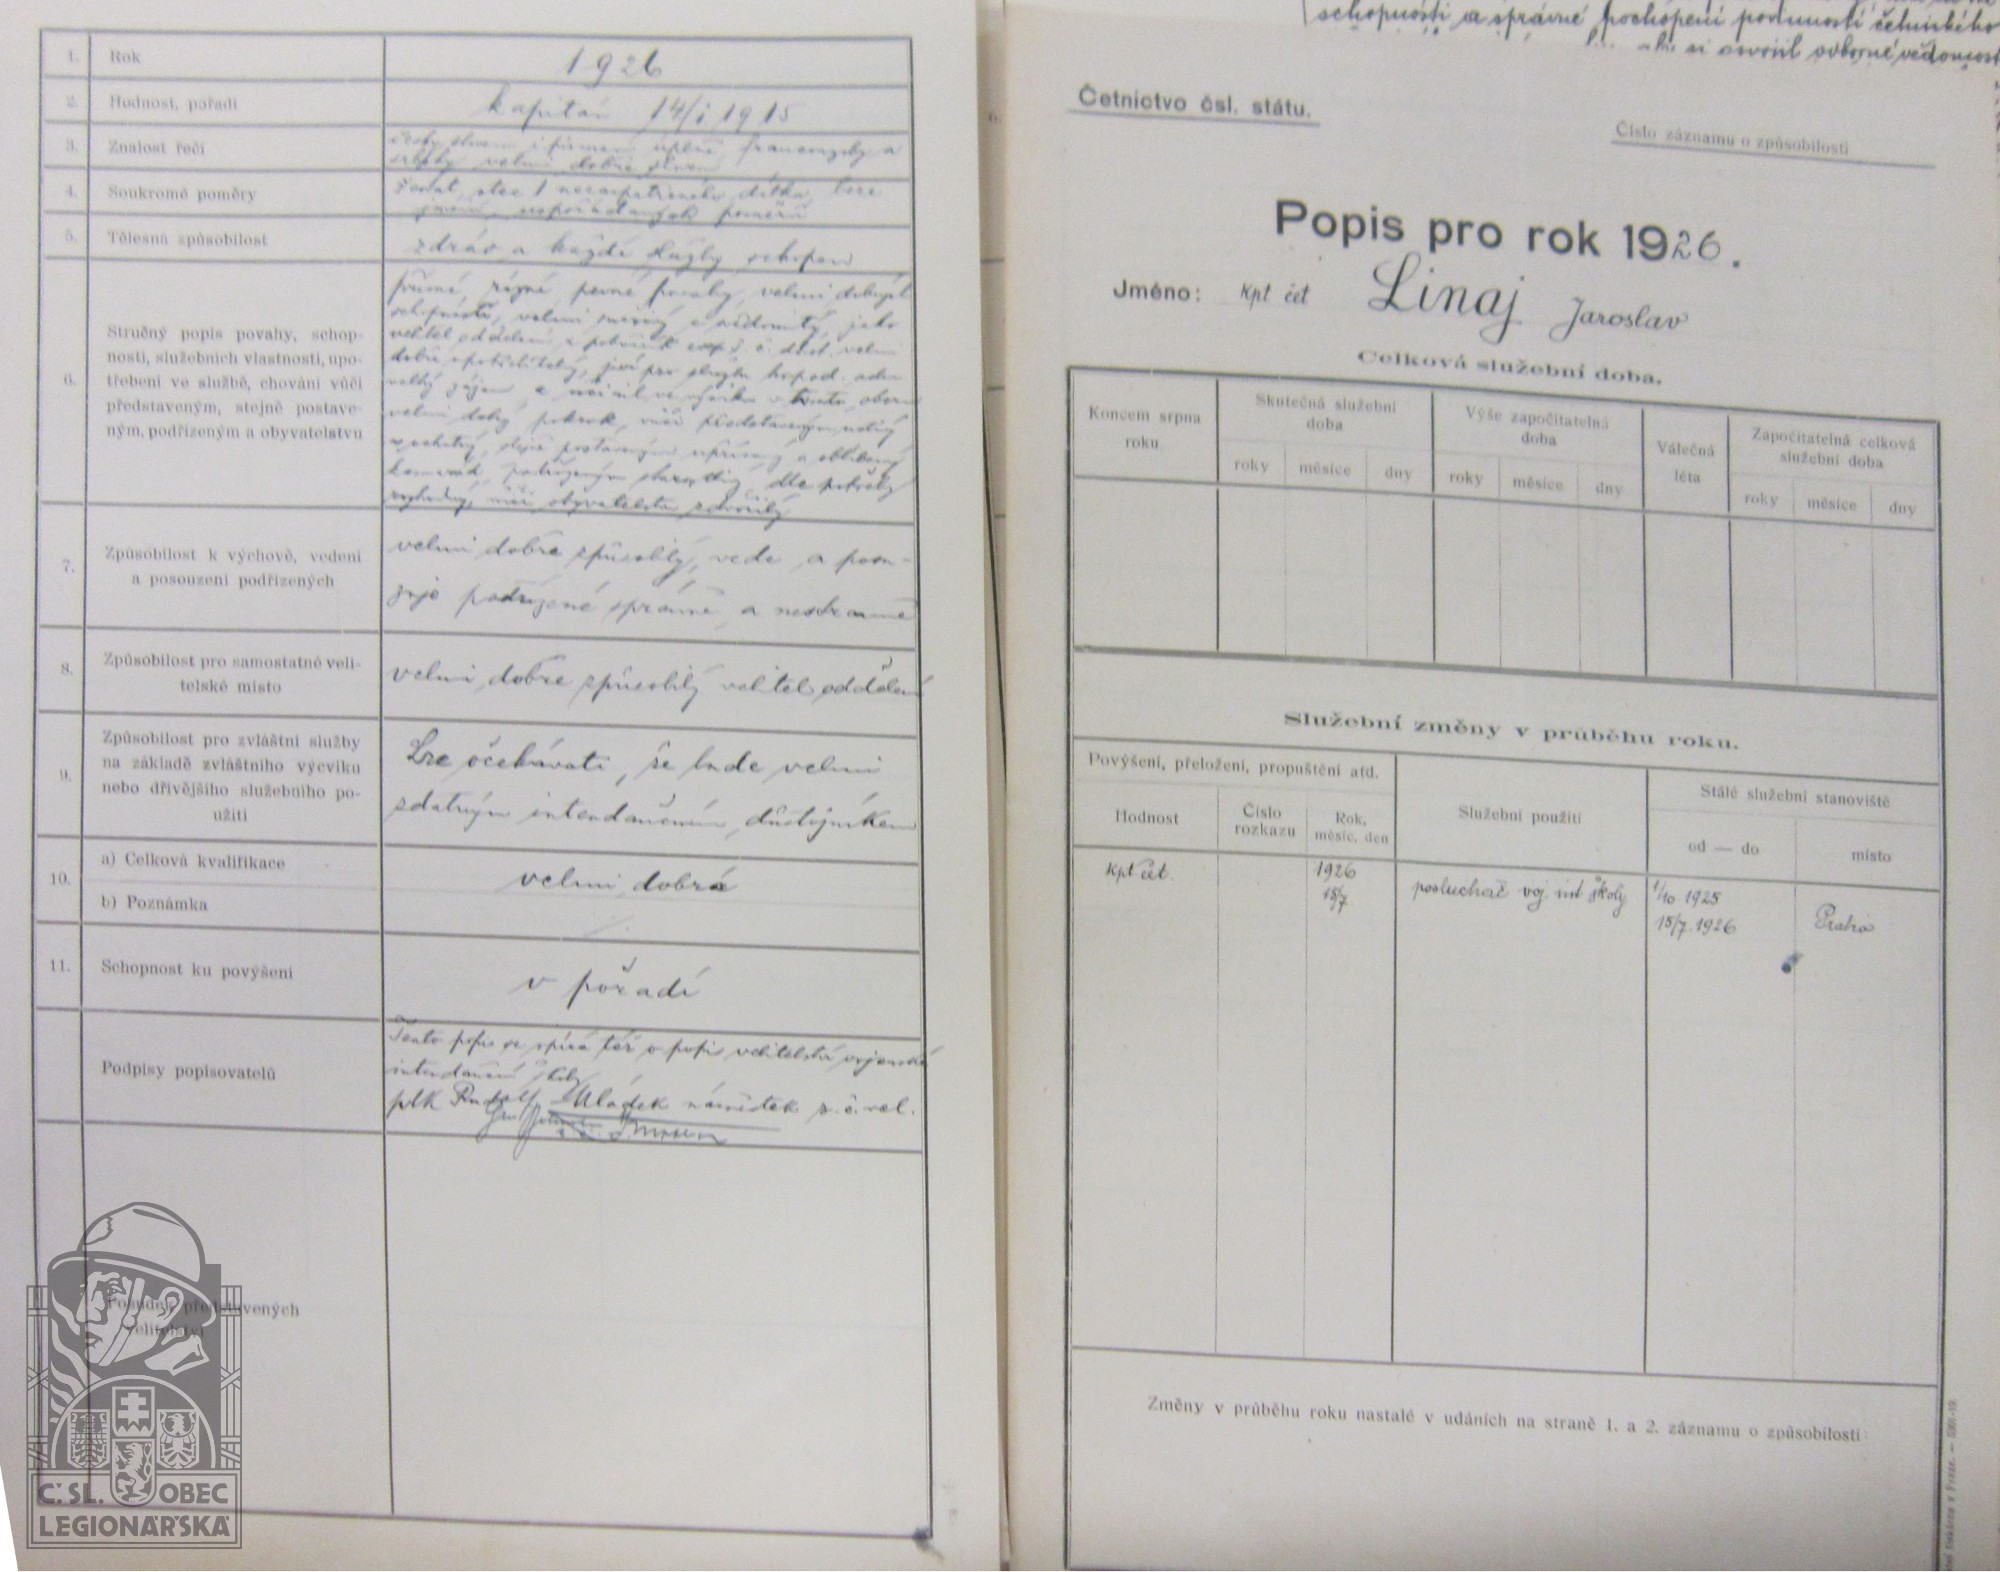 1. Rok 1926
2. Hodnost, pořadí kapitán 14/I 1915
3. Znalost řečí česky slovem i písmem úplně, francouzsky a
srbsky velmi dobře slovem
4. Soukromé poměry ženat, otec 1 nezaopatřeného dítka, beze
jmění, uspořádaných poměrů
5. Tělesná způsobilost zdráv a každé služby schopen
6. Stručný popis povahy, schop-
ností, služebních vlastností, upo-
třebení ve službě, chování vůči
představeným, stejně postave-
ným, podřízeným a obyvatelstvu
přímé, rázné, pevné povahy, velmi dobrých
schopností, velmi snaživý a svědomitý, jako
velitel oddělení a pobočník z. č. velmi
dobře upotřebitelný, jeví pro službu hospod. adm.
velký zájem a učinil ve výcviku v tomto oboru
velmi dobrý pokrok, vůči představeným uctivý
a ochotný, stejně postaveným upřímný a oblíbený
kamarád, podřízeným starostlivý, dle potřeby
rozhodný, vůči obyvatelstvu zdvořilý
7. Způsobilost k výchově, vedení
a posouzení podřízených
velmi dobře způsobilý, vede a posu-
zuje podřízené správně a nestranně
8. Způsobilost pro samostatné veli-
telské místo
velmi dobře způsobilý velitel oddělení
9. Způsobilost pro zvláštní služby
na základě zvláštního výcviku
nebo dřívějšího služebního po-
užití
Lze očekávati, že bude velmi
zdatným intendančním důstojníkem
10. a) Celková kvalifikace velmi dobrá
b) Poznámka
11. Schopnost ku povýšení v pořadí
Podpisy popisovatelů
Tento popis se opírá též o popis velitelství vojenské
intendanční školy
plk Rudolf Mládek náměstek z. č. vel.
Posudek představených
velitelství
Č. SL. OBEC
LEGIONÁŘSKÁ
schopnosti a správné pochopení povinností četnického
si osvojil odborné vědomosti
Četnictvo čsl. státu.
Číslo záznamu o způsobilosti
Popis pro rok 1926.
Jméno: kpt čet Linaj Jaroslav
Celková služební doba.
Koncem srpna
roku
Skutečná služební
doba
Výše započitatelná
doba
Válečná
léta
Započitatelná celková
služební doba
roky měsíce dny roky měsíce dny roky měsíce dny
Služební změny v průběhu roku.
Povýšení, přeložení, propuštění atd.
Služební použití
Stálé služební stanoviště
Hodnost
Číslo
rozkazu
Rok,
měsíc, den
od — do místo
kpt čet. 1926
15/7
posluchač voj. int školy
1/10. 1925
15/7. 1926
Praha
Změny v průběhu roku nastalé v udáních na straně 1. a 2. záznamu o způsobilosti: